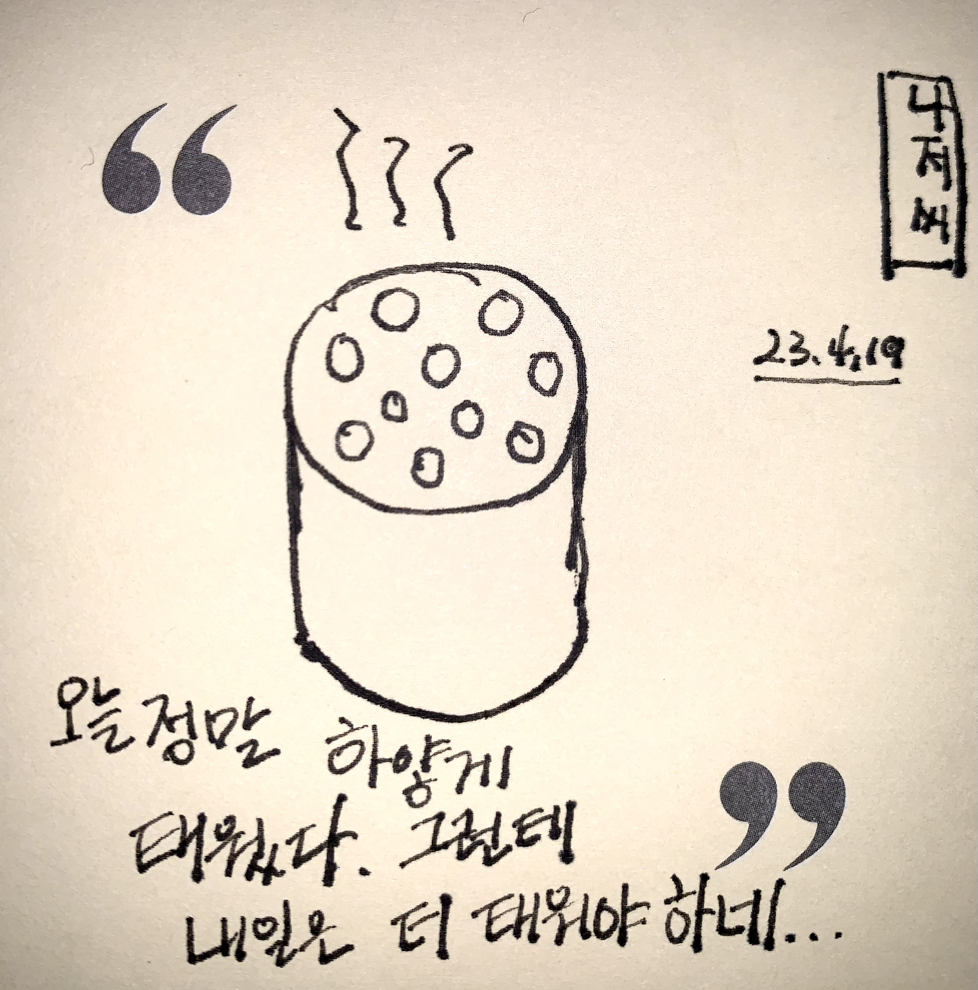 “
나저씨
23.4.19
오늘 정말 하얗게
태웠다. 그런데
내일은 더 태워야 하네...
”